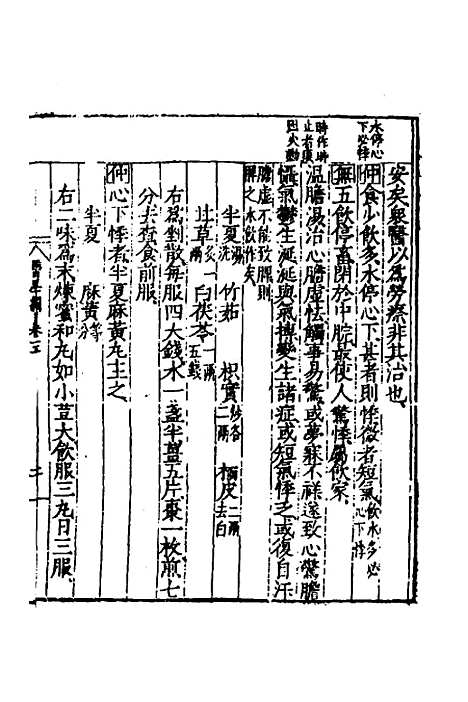 水停心
下必悸
時作時
止者痰
因火動
安矣衆醫以爲勞瘵非其治也
仲食少飲多水停心下甚者則悸微者短氣飲水多必心下悸
無五飲停蓄閉於中脘最使人驚悸屬飲家
溫膽湯治心膽虛怯觸事易驚或夢寐不祥遂致心驚膽
懾氣鬱生涎涎與氣搏變生諸症或短氣悸乏或復自汗
膽虛不能致脾則脾之水飲作矣
半夏湯洗 竹茹 枳實麩炒各二兩 橘皮二兩去白
甘草炙一兩 白茯苓一兩五錢
右爲剉散每服四大錢水一盞半薑五片棗一枚煎七
分去滓食前服
仲心下悸者半夏麻黃丸主之
半夏 麻黃等分
右二味爲末煉蜜和丸如小荳大飲服三丸日三服